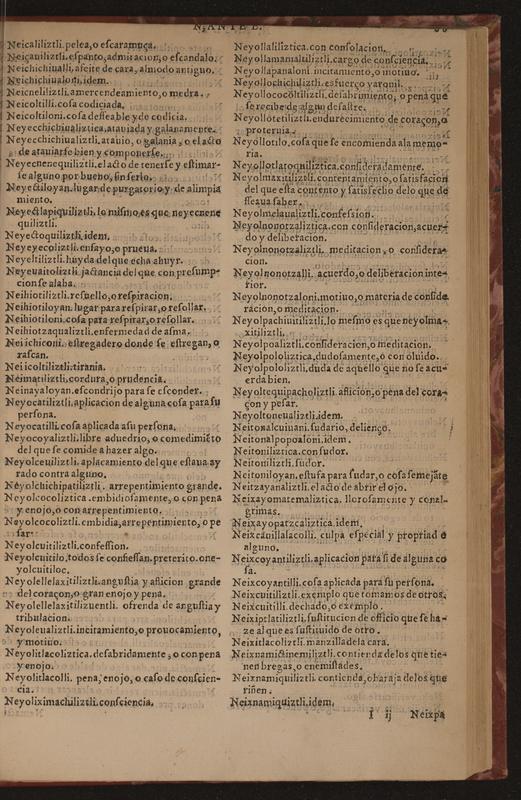 N, ANTE E.
Neicaliliztli. pelea, o escaramuça.
Neiçauiliztli. espanto, admiracion, o escandalo.
Neichichiualli. afeite de cara, al modo antiguo.
Neichichiualoni. idem.
Neicneliliztli. amercendeamiento, o medra.
Neicoltilli. cosa codiciada.
Neicoltiloni. cosa desseable y de codicia.
Neyecchichiualiztica. atauiada y galanamente.
Neyecchichiualiztli. atauio, o galania, o el acto
de atauiarse bien y componerse.
Neyecnenequiliztli. el acto de tenerse y estimar-
se alguno por bueno, sin serlo.
Neyectiloyan. lugar de purgatorio y de alimpia
miento.
Neyectlapiquiliztli. lo mismo es que neyecnene
quiliztli.
Neyectoquiliztli. idem.
Neyeyecoliztli. ensayo, o prueua.
Neyeltiliztli. huyda del que echa ahuyr.
Neyeuaitoliztli. jactancia del que con presump-
cion se alaba.
Neihiotiliztli. resuello, o respiracion.
Neihiotiloyan. lugar para respirar, o resollar.
Neihiotiloni. cosa para respirar, o resollar.
Neihiotzaqualiztli. enfermedad de asma.
Neiichiconi. estregadero donde se estriegan, o
rascan.
Neiicoltiliztli. tirania.
Neimatiliztli. cordura, o prudencia.
Neinayaloyan. escondrijo para se esconder.
Neyocatiliztli. aplicacion de alguna cosa para su
persona.
Neyocatilli. cosa aplicada a su persona.
Neyocoyaliztli. libre aluedrio, o comedimiẽto
del que se comide a hazer algo.
Neyolceuiliztli. aplacamiento del que estaua ay
rado contra alguno.
Neyolchichipatiliztli. arrepentimiento grande.
Neyolcocoliztica. embidiosamente, o con pena
y enojo, o con arrepentimiento.
Neyolcocoliztli. embidia, arrepentimiento, o pe
sar.
Neyolcuitiliztli. confession.
Neyolcuitilo. todos se confiessan. preterito. one-
yolcuitiloc.
Neyolellelaxitiliztli. angustia y aflicion grande
del coraçon, o gran enojo y pena.
Neyolellelaxitilizuentli. ofrenda de angustia y
tribulacion.
Neyoleualiztli. incitamiento, o prouocamiento,
y motiuo.
Neyolitlacoliztica. desabridamente, o con pena
y enojo.
Neyolitlacolli. pena, enojo, o caso de conscien-
cia.
Neyoliximachiliztli. consciencia.
Neyollaliliztica. con consolacion.
Neyollamamaltiliztli. cargo de consciencia.
Neyollapanaloni. incitamiento, o motiuo.
Neyollochichiliztli. esfuerço varonil.
Neyollococoltiliztli. desabrimiento, o pena que
se recibe de algun desastre.
Neyollotetiliztli. endurecimiento de coraçon, o
proteruia.
Neyollotilo. cosa que se encomienda a la memo-
ria.
Neyollotlatoquiliztica. consideradamente.
Neyolmaxitiliztli. contentamiento, o satisfacion
del que esta contento y satisfecho de lo que de
sseaua saber.
Neyolmelaualiztli. confession.
Neyolnonotzaliztica. con consideracion, acuer-
do y deliberacion.
Neyolnonotzaliztli. meditacion, o considera-
cion.
Neyolnonotzalli. acuerdo, o deliberacion inte-
rior.
Neyolnonotzaloni. motiuo, o materia de conside
racion, o meditacion.
Neyolpachiuitiliztli. lo mesmo es que neyolma-
xitiliztli.
Neyolpoaliztli. consideracion, o meditacion.
Neyolpololiztica. dudosamente, o con oluido.
Neyolpololiztli. duda de aquello que no se acu-
erda bien.
Neyoltequipacholiztli. aflicion, o pena del cora-
çon y pesar.
Neyoltoneualiztli. idem.
Neitonalcuiuani. sudario, de lienço.
Neitonalpopoaloni. idem.
Neitoniliztica. con sudor.
Neitoniliztli. sudor.
Neitoniloyan. estufa para sudar, o cosa semejãte
Neitzayanaliztli. el acto de abrir el ojo.
Neixayomatemaliztica. llorosamente y con la-
grimas.
Neixayopatzcaliztica. idem.
Neixcauillatlacolli. culpa especial y propria d
alguno.
Neixcoyantiliztli. aplicacion para si de alguna co
sa.
Neixcoyantilli. cosa aplicada para su persona.
Neixcuitiliztli. exemplo que tomamos de otros.
Neixcuitilli. dechado, o exemplo.
Neixiptlatiliztli. sustitucion de officio que se ha-
ze al que es sustituido de otro.
Neixitlacoliztli. manzilla de la cara.
Neixnamictinemiliztli. contienda de los que tie-
nen bregas, o enemistades.
Neixnamiquiliztli. contienda, o baraja de los que
riñen.
Neixnamiquiztli. idem.
I ij Neixpa